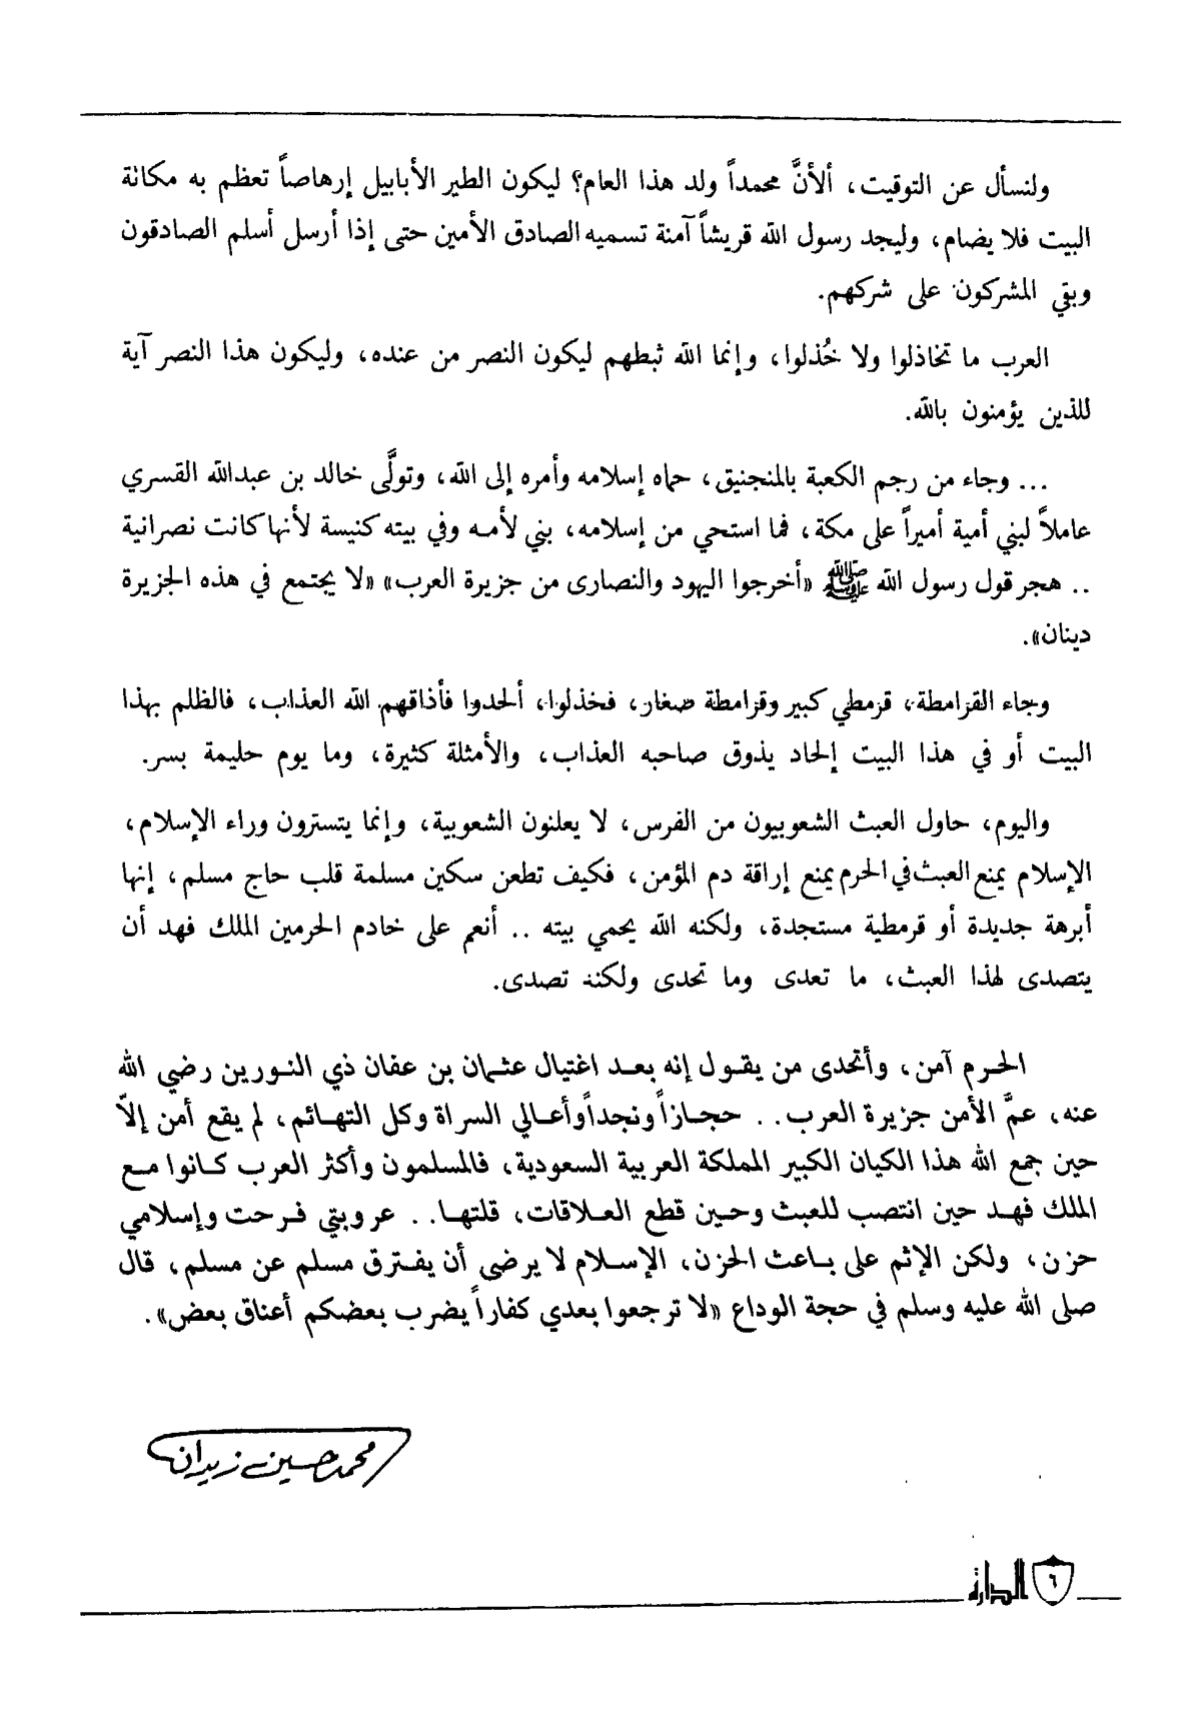 ولنسأل عن التوقيت، ألأنَّ محمداً ولد هذا العام؟ ليكون الطير الأبابيل إرهاصاً تعظم به مكانة
البيت فلا يضام، وليجد رسول الله قريشاً آمنة تسميه الصادق الأمين حتى إذا أرسل أسلم الصادقون
وبقي المشركون على شركهم.
العرب ما تخاذلوا ولا خُذلوا، وإنما الله ثبطهم ليكون النصر من عنده، وليكون هذا النصر آية
للذين يؤمنون بالله.
... وجاء من رجم الكعبة بالمنجنيق، حماه إسلامه وأمره إلى الله، وتولَّى خالد بن عبدالله القسري
عاملاً لبني أمية أميراً على مكة، فما استحي من إسلامه، بني لأمه وفي بيته كنيسة لأنها كانت نصرانية
.. هجر قول رسول الله ﷺ «أخرجوا اليهود والنصارى من جزيرة العرب» «لا يجتمع في هذه الجزيرة
دينان».
وجاء القرامطة، قرمطي كبير وقرامطة صغار، فخذلوا، ألحدوا فأذاقهم الله العذاب، فالظلم بهذا
البيت أو في هذا البيت إلحاد يذوق صاحبه العذاب، والأمثلة كثيرة، وما يوم حليمة بسر.
واليوم، حاول العبث الشعوبيون من الفرس، لا يعلنون الشعوبية، وإنما يتسترون وراء الإسلام،
الإسلام يمنع العبث في الحرم يمنع إراقة دم المؤمن، فكيف تطعن سكين مسلمة قلب حاج مسلم، إنها
أبرهة جديدة أو قرمطية مستجدة، ولكنه الله يحمي بيته .. أنعم على خادم الحرمين الملك فهد أن
يتصدى لهذا العبث، ما تعدى وما تحدى ولكنه تصدى.
الحرم آمن، وأتحدى من يقول إنه بعد اغتيال عثمان بن عفان ذي النورين رضي الله
عنه، عمَّ الأمن جزيرة العرب.. حجازاً ونجداً وأعالي السراة وكل التهائم، لم يقع أمن إلاّ
حين جمع الله هذا الكيان الكبير المملكة العربية السعودية، فالمسلمون وأكثر العرب كانوا مع
الملك فهد حين انتصب للعبث وحين قطع العلاقات، قلتها.. عروبتي فرحت وإسلامي
حزن، ولكن الإثم على باعث الحزن، الإسلام لا يرضى أن يفترق مسلم عن مسلم، قال
صلى الله عليه وسلم في حجة الوداع «لا ترجعوا بعدي كفاراً يضرب بعضكم أعناق بعض».
محمد حسين زيدان
٦ الدارة